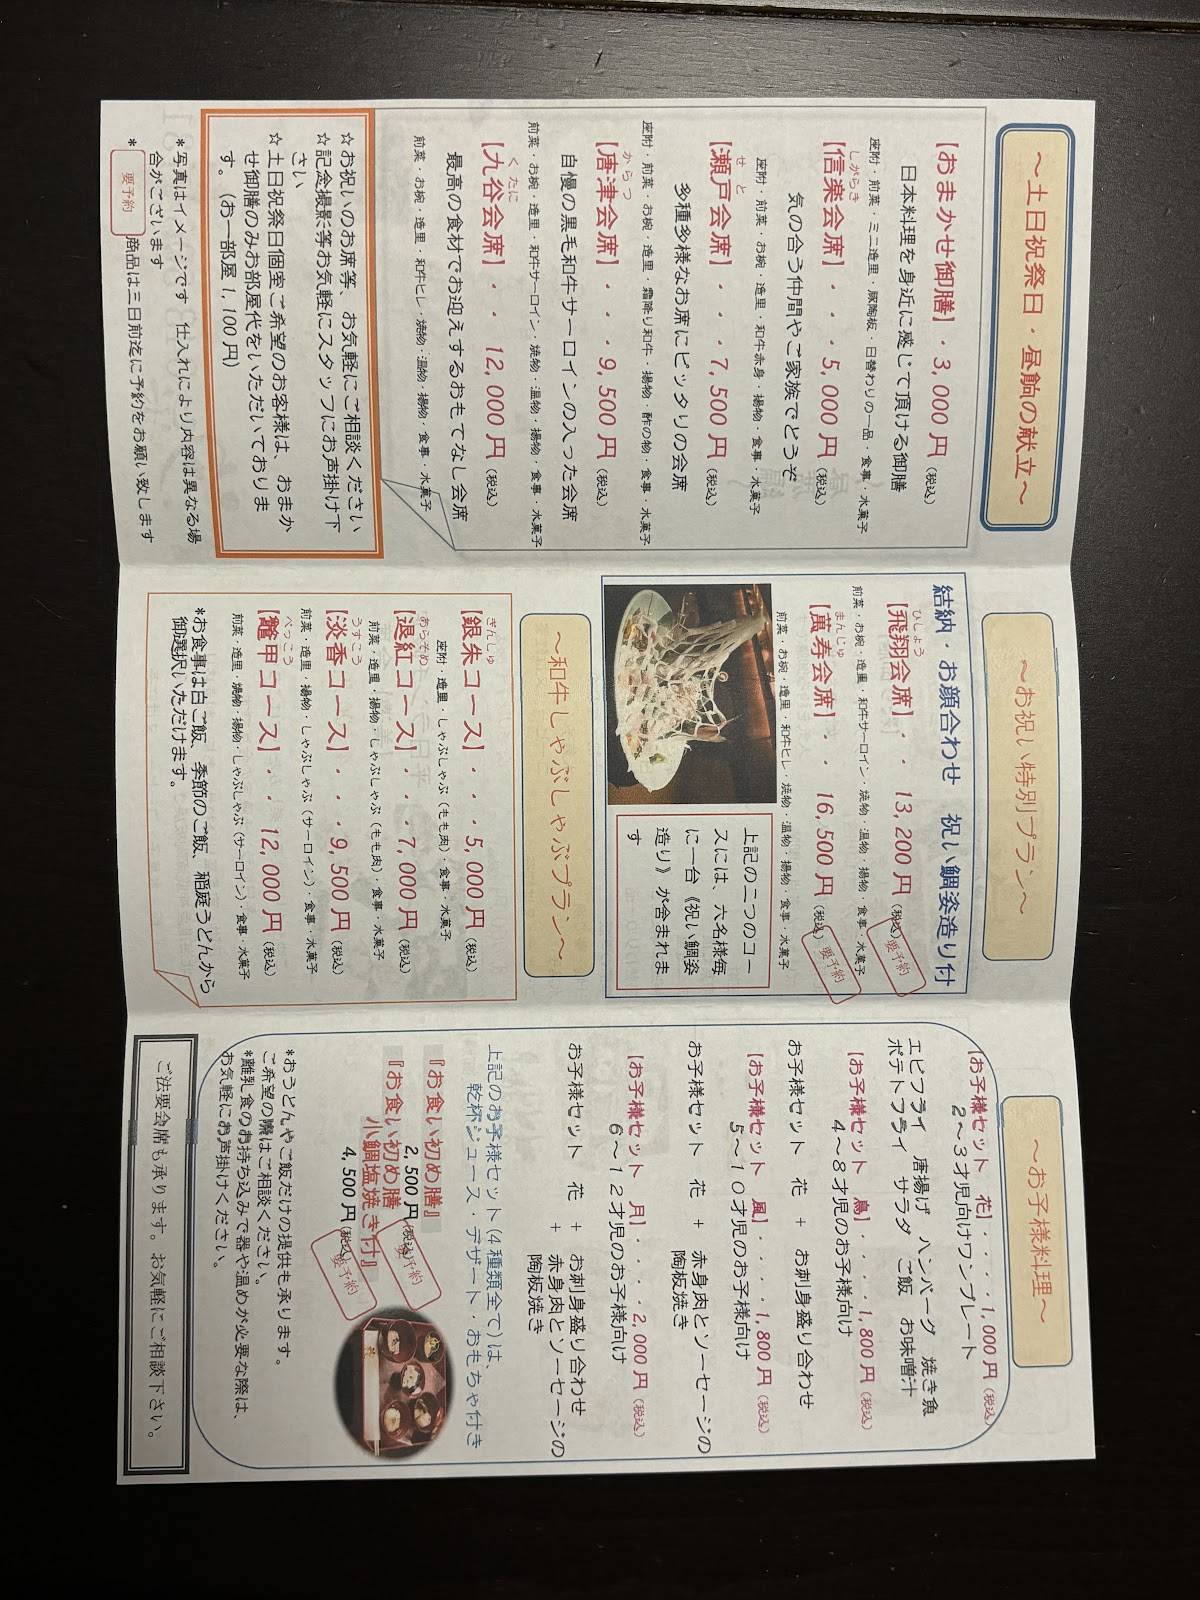 ～土日祝祭日・昼餉の献立～
【おまかせ御膳】・3,000円(税込)
日本料理を身近に感じて頂ける御膳
座附・前菜・ミニ造里・豚陶板・日替わりの一品・食事・水菓子
しがらき
【信楽会席】・・5,000円(税込)
気の合う仲間やご家族でどうぞ
座附・前菜・お椀・造里・和牛赤身・揚物・食事・水菓子
せと
【瀬戸会席】・・7,500円(税込)
多種多様なお席にピッタリの会席
座附・前菜・お椀・造里・霜降り和牛・揚物・酢の物・食事・水菓子
からつ
【唐津会席】・・9,500円(税込)
自慢の黒毛和牛サーロインの入った会席
前菜・お椀・造里・和牛サーロイン・焼物・温物・揚物・食事・水菓子
くたに
【九谷会席】・・12,000円(税込)
最高の食材でお迎えするおもてなし会席
前菜・お椀・造里・和牛ヒレ・焼物・温物・揚物・食事・水菓子
☆お祝いのお席等、お気軽にご相談ください
☆記念撮影等お気軽にスタッフにお声掛け下
さい
☆土日祝祭日個室ご希望のお客様は、おまか
せ御膳のみお部屋代をいただいておりま
す。(お一部屋1,100円)
*写真はイメージです 仕入れにより内容は異なる場
合がございます
* 要予約 商品は三日前迄に予約をお願い致します
～お祝い特別プラン～
結納・お顔合わせ 祝い鯛姿造り付
ひしょう
【飛翔会席】・・13,200円(税込)
要予約
前菜・お椀・造里・和牛サーロイン・焼物・温物・揚物・食事・水菓子
まんじゅ
【萬寿会席】・・16,500円(税込)
要予約
前菜・お椀・造里・和牛ヒレ・焼物・温物・揚物・食事・水菓子
上記の二つのコー
スには、六名様毎
に一台《祝い鯛姿
造り》が含まれま
す
～和牛しゃぶしゃぶプラン～
ぎんしゅ
【銀朱コース】・・・5,000円(税込)
座附・造里・しゃぶしゃぶ(もも肉)・食事・水菓子
あらぞめ
【退紅コース】・・・7,000円(税込)
前菜・造里・揚物・しゃぶしゃぶ(もも肉)・食事・水菓子
うすこう
【淡香コース】・・・9,500円(税込)
前菜・造里・揚物・しゃぶしゃぶ(サーロイン)・食事・水菓子
べっこう
【鼈甲コース】・・12,000円(税込)
前菜・造里・焼物・揚物・しゃぶしゃぶ(サーロイン)・食事・水菓子
*お食事は白ご飯、季節のご飯、稲庭うどんから
御選択いただけます。
～お子様料理～
【お子様セット 花】・・・・1,000円(税込)
2～3才児向けワンプレート
エビフライ 唐揚げ ハンバーグ 焼き魚
ポテトフライ サラダ ご飯 お味噌汁
【お子様セット 鳥】・・・・1,800円(税込)
4～8才児のお子様向け
お子様セット 花 + お刺身盛り合わせ
【お子様セット 風】・・・・1,800円(税込)
5～10才児のお子様向け
お子様セット 花 + 赤身肉とソーセージの
陶板焼き
【お子様セット 月】・・・・2,000円(税込)
6～12才児のお子様向け
お子様セット 花 + お刺身盛り合わせ
+ 赤身肉とソーセージの
陶板焼き
上記のお子様セット(4種類全て)は、
乾杯ジュース・デザート・おもちゃ付き
『お食い初め膳』
2,500円(税込)
要予約
『お食い初め膳
小鯛塩焼き付』
4,500円(税込)
要予約
*おうどんやご飯だけの提供も承ります。
ご希望の際はご相談ください。
*離乳食のお持ち込みで器や温めが必要な際は、
お気軽にお声掛けください。
ご法要会席も承ります。お気軽にご相談下さい。